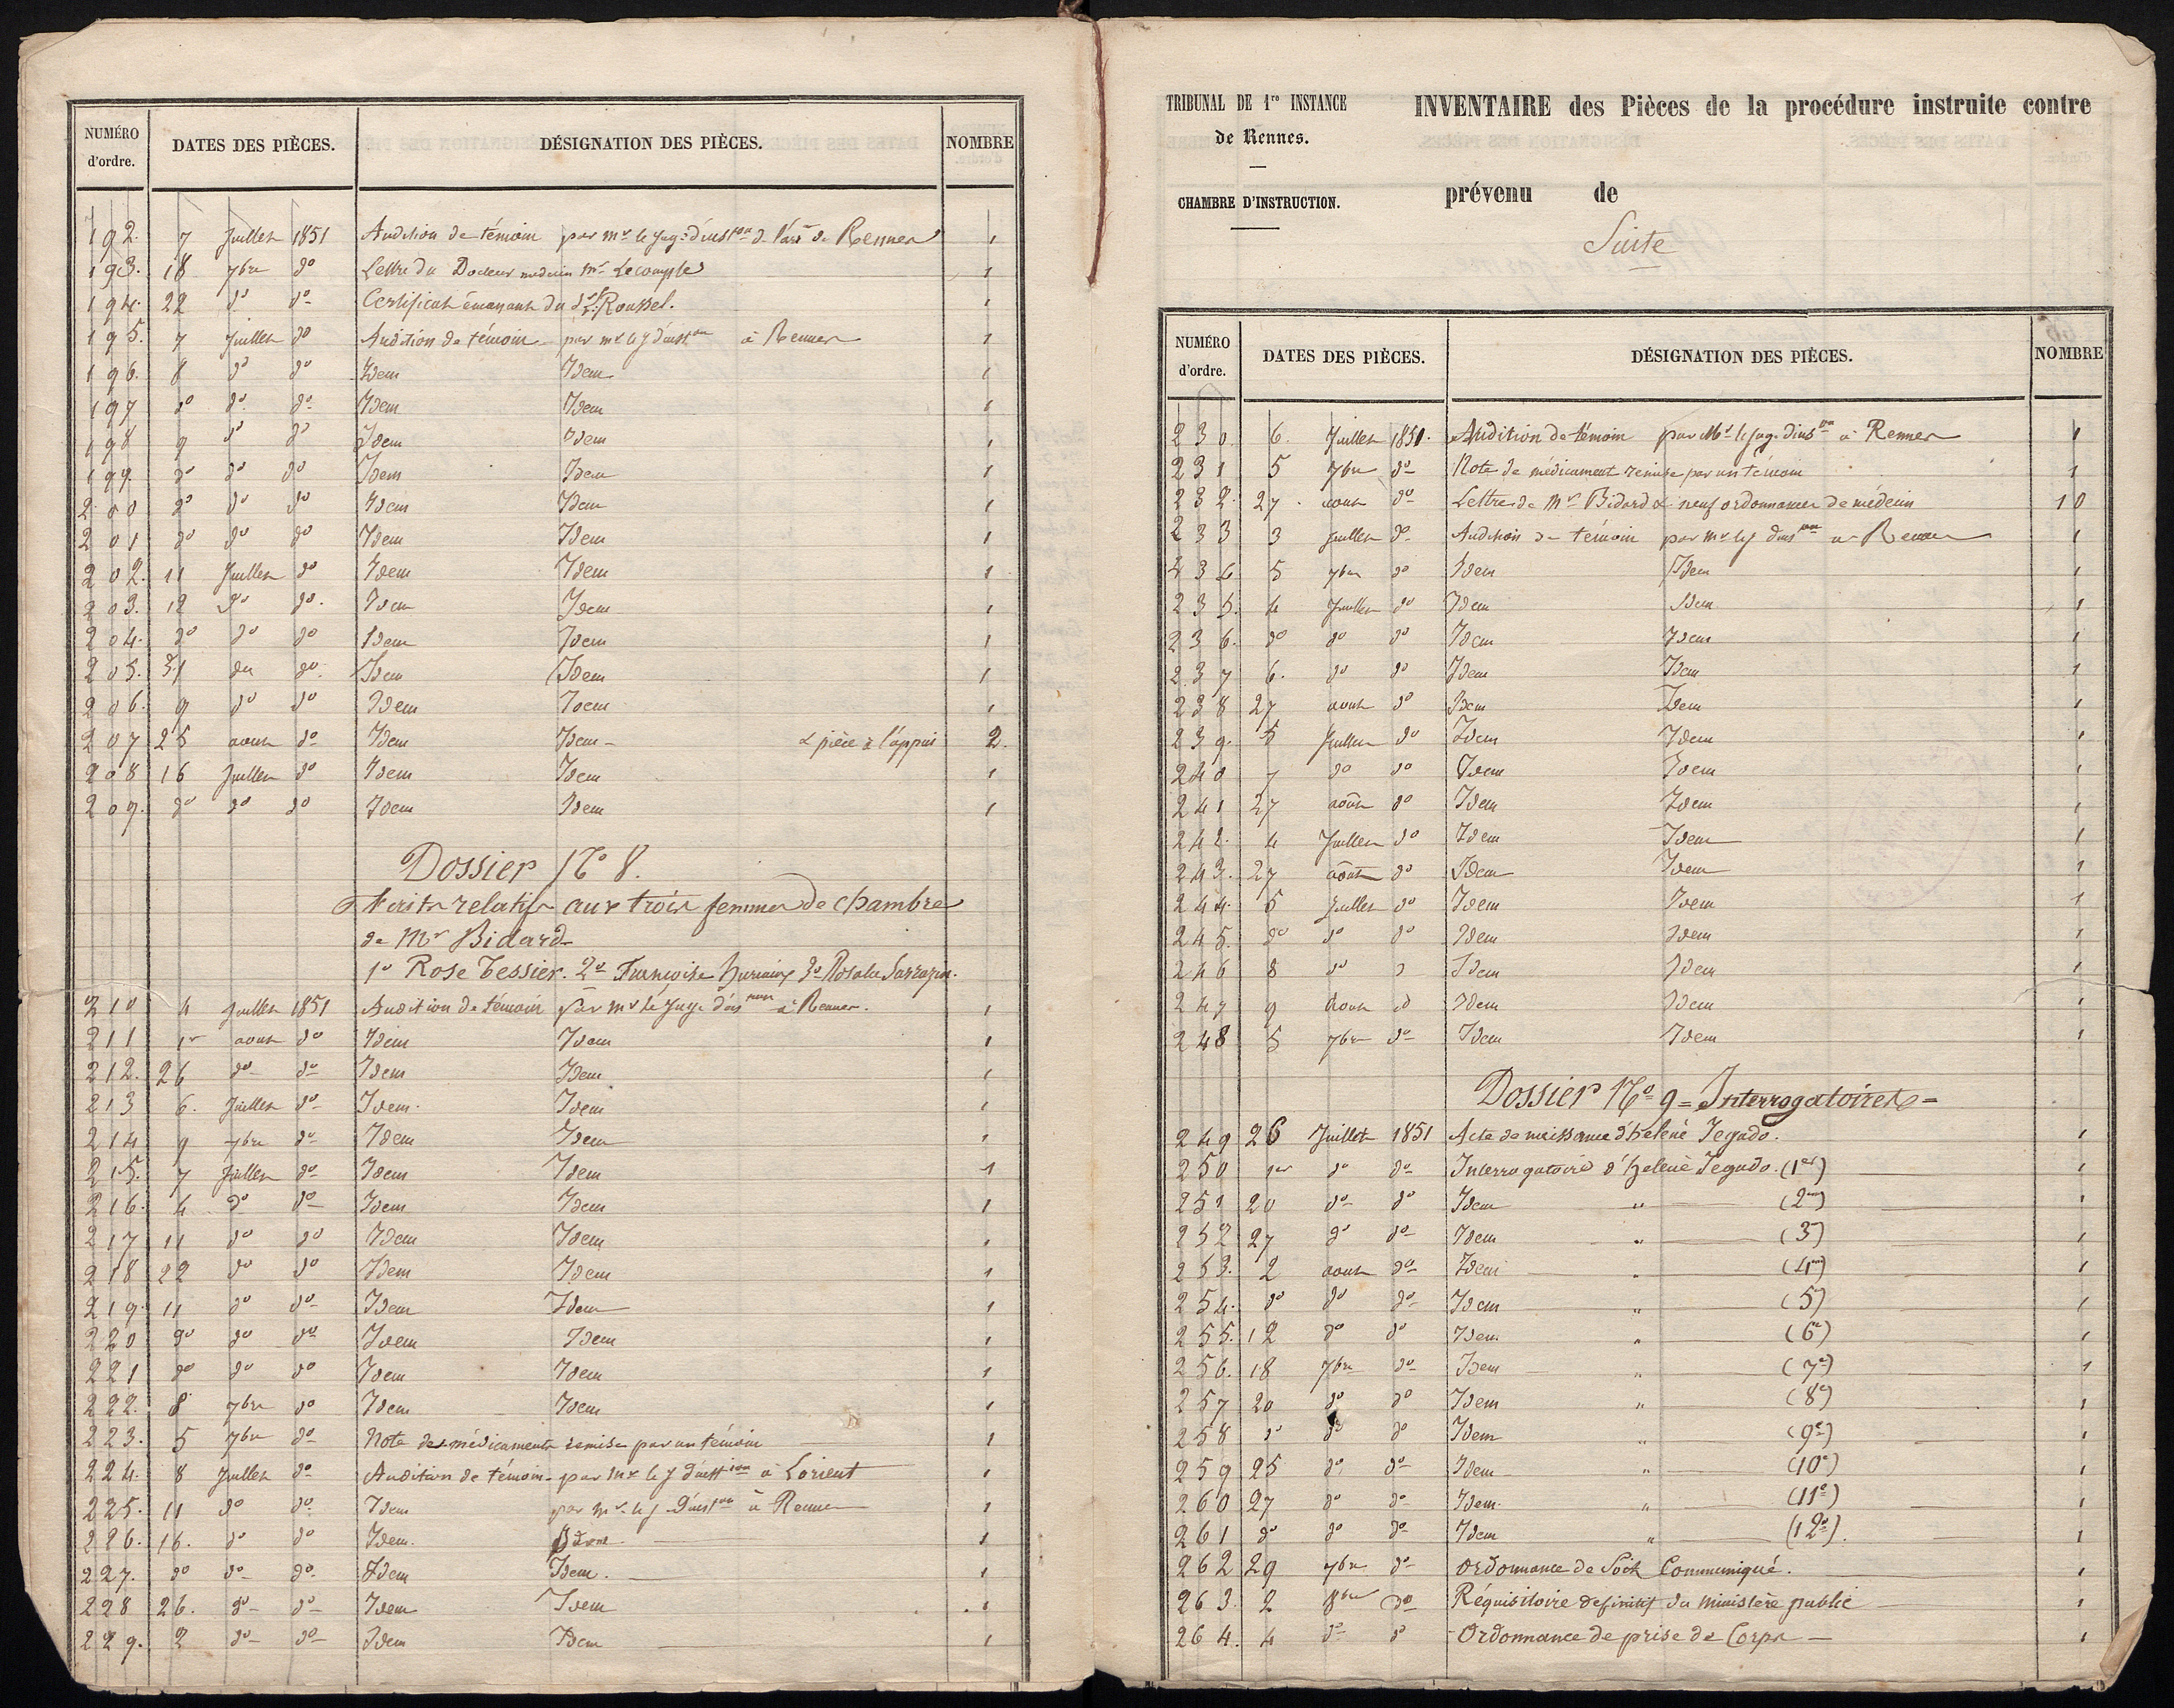 NUMÉRO d'ordre. DATES DES PIÈCES. DÉSIGNATION DES PIÈCES. NOMBRE
192. 7 Juillet 1851 Audition de témoin par Mr le Juge d'inston de l'arrt de Rennes 1
193. 18 7bre do Lettre du Docteur medecin Mr Lecompte 1
194. 22 do do Certificat émanant du Sr Roussel. 1
195. 7 Juillet do Audition de témoin par Mr le J d'inston à Rennes 1
196. 8 do do Idem Idem 1
197 do do do Idem Idem 1
198 9 do do Idem Idem 1
199. do do do Idem Idem 1
200 do do do Idem Idem 1
201 do do do Idem Idem 1
202. 11 Juillet do Idem Idem 1
203. 12 do do. Idem Idem 1
204. do do do Idem Idem 1
205. 31 du do Idem Idem 1
206. 9 do do Idem Idem 1
207 25 aout do Idem Idem & pièce à l'appui 2.
208 16 Juillet do Idem Idem 1
209. do do do Idem Idem 1
Dossier No 8.
Faits relatifs aux trois femmes de chambre
de Mr Bidard
1o Rose Tessier. 2o Françoise Huriaux 3o Rosalie Sarrazin.
210 4 Juillet 1851 Audition de témoin par Mr le Juge d'inston à Rennes. 1
211 1er aout do Idem Idem 1
212. 26 do do Idem Idem 1
213 6. Juillet do Idem. Idem 1
214 9 7bre do Idem Idem 1
215. 7 Juillet do Idem Idem 1
216. 4 do do Idem Idem 1
217 11 do do Idem Idem 1
218 22 do do Idem Idem 1
219. 11 do do Idem Idem 1
220 do do do Idem Idem 1
221 do do do Idem Idem 1
222. 8 7bre do Idem Idem 1
223. 5 7bre do Note des médicaments remise par un témoin 1
224. 8 Juillet do Audition de témoin par Mr le J d'instion à Lorient 1
225. 11 do do Idem par Mr le J d'inston à Rennes 1
226. 16. do do Idem. Idem 1
227. do do do Idem Idem. 1
228 26. do do Idem Idem 1
229. 2 do do Idem Idem 1
TRIBUNAL DE 1re INSTANCE
de Rennes.
CHAMBRE D'INSTRUCTION.
INVENTAIRE des Pièces de la procédure instruite contre
prévenu de
Suite
NUMÉRO d'ordre. DATES DES PIÈCES. DÉSIGNATION DES PIÈCES. NOMBRE
230. 6. Juillet 1851. Audition de témoin par Mr le Jug. d'inson à Rennes 1
231 5 7bre do Note de médicament remise par un témoin 1
232. 27 aout do Lettre de Mr Bidard & neuf ordonnances de médecin 10
233 3 Juillet do Audition de témoin par Mr le J d'inson à Rennes 1
234 5 7bre do Idem Idem 1
235. 4 Juillet do Idem Idem 1
236. do do do Idem Idem 1
237 6. do do Idem Idem 1
238 27 aout do Idem Idem 1
239. 5 Juillet do Idem Idem 1
240 7 do do Idem Idem 1
241 27 août do Idem Idem 1
242. 4 Juillet do Idem Idem 1
243. 27 août do Idem Idem 1
244. 5 Juillet do Idem Idem 1
245. do do do Idem Idem 1
246 8 do Idem Idem 1
247 9 aout do Idem Idem 1
248 5 7bre do Idem Idem 1
Dossier No 9 = Interrogatoires =
249 26 Juillet 1851 Acte de naissance d'helène Jegado. 1
250 1er do do Interrogatoire d'helène Jegado. (1er) 1
251 20 do do Idem " (2me) 1
252 27 do do Idem " (3e) 1
253. 2 aout do Idem " (4me) 1
254. do do do Idem " (5e) 1
255. 12 do do Idem " (6e) 1
256. 18 7bre do Idem " (7e) 1
257 20 do do Idem " (8e) 1
258 do do do Idem " (9e) 1
259 25 do do Idem " (10e) 1
260 27 do do Idem. " (11e) 1
261 do do do Idem " (12e). 1
262 29 7bre do Ordonnance de Soit Communiqué. 1
263. 2 8bre do Réquisitoire definitif du ministère public 1
264. 4 do do Ordonnance de prise de Corps 1